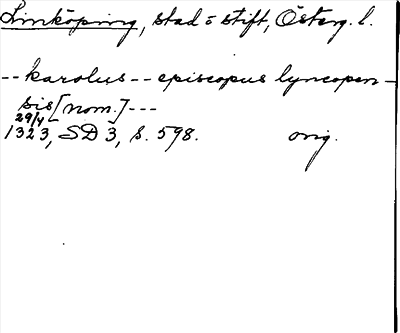 Linköping, stad o stift, Österg. l.
-- karolus -- episcopus lyncopen-
sis [nom.] ---
29/4
1323, SD 3, s. 598. orig.